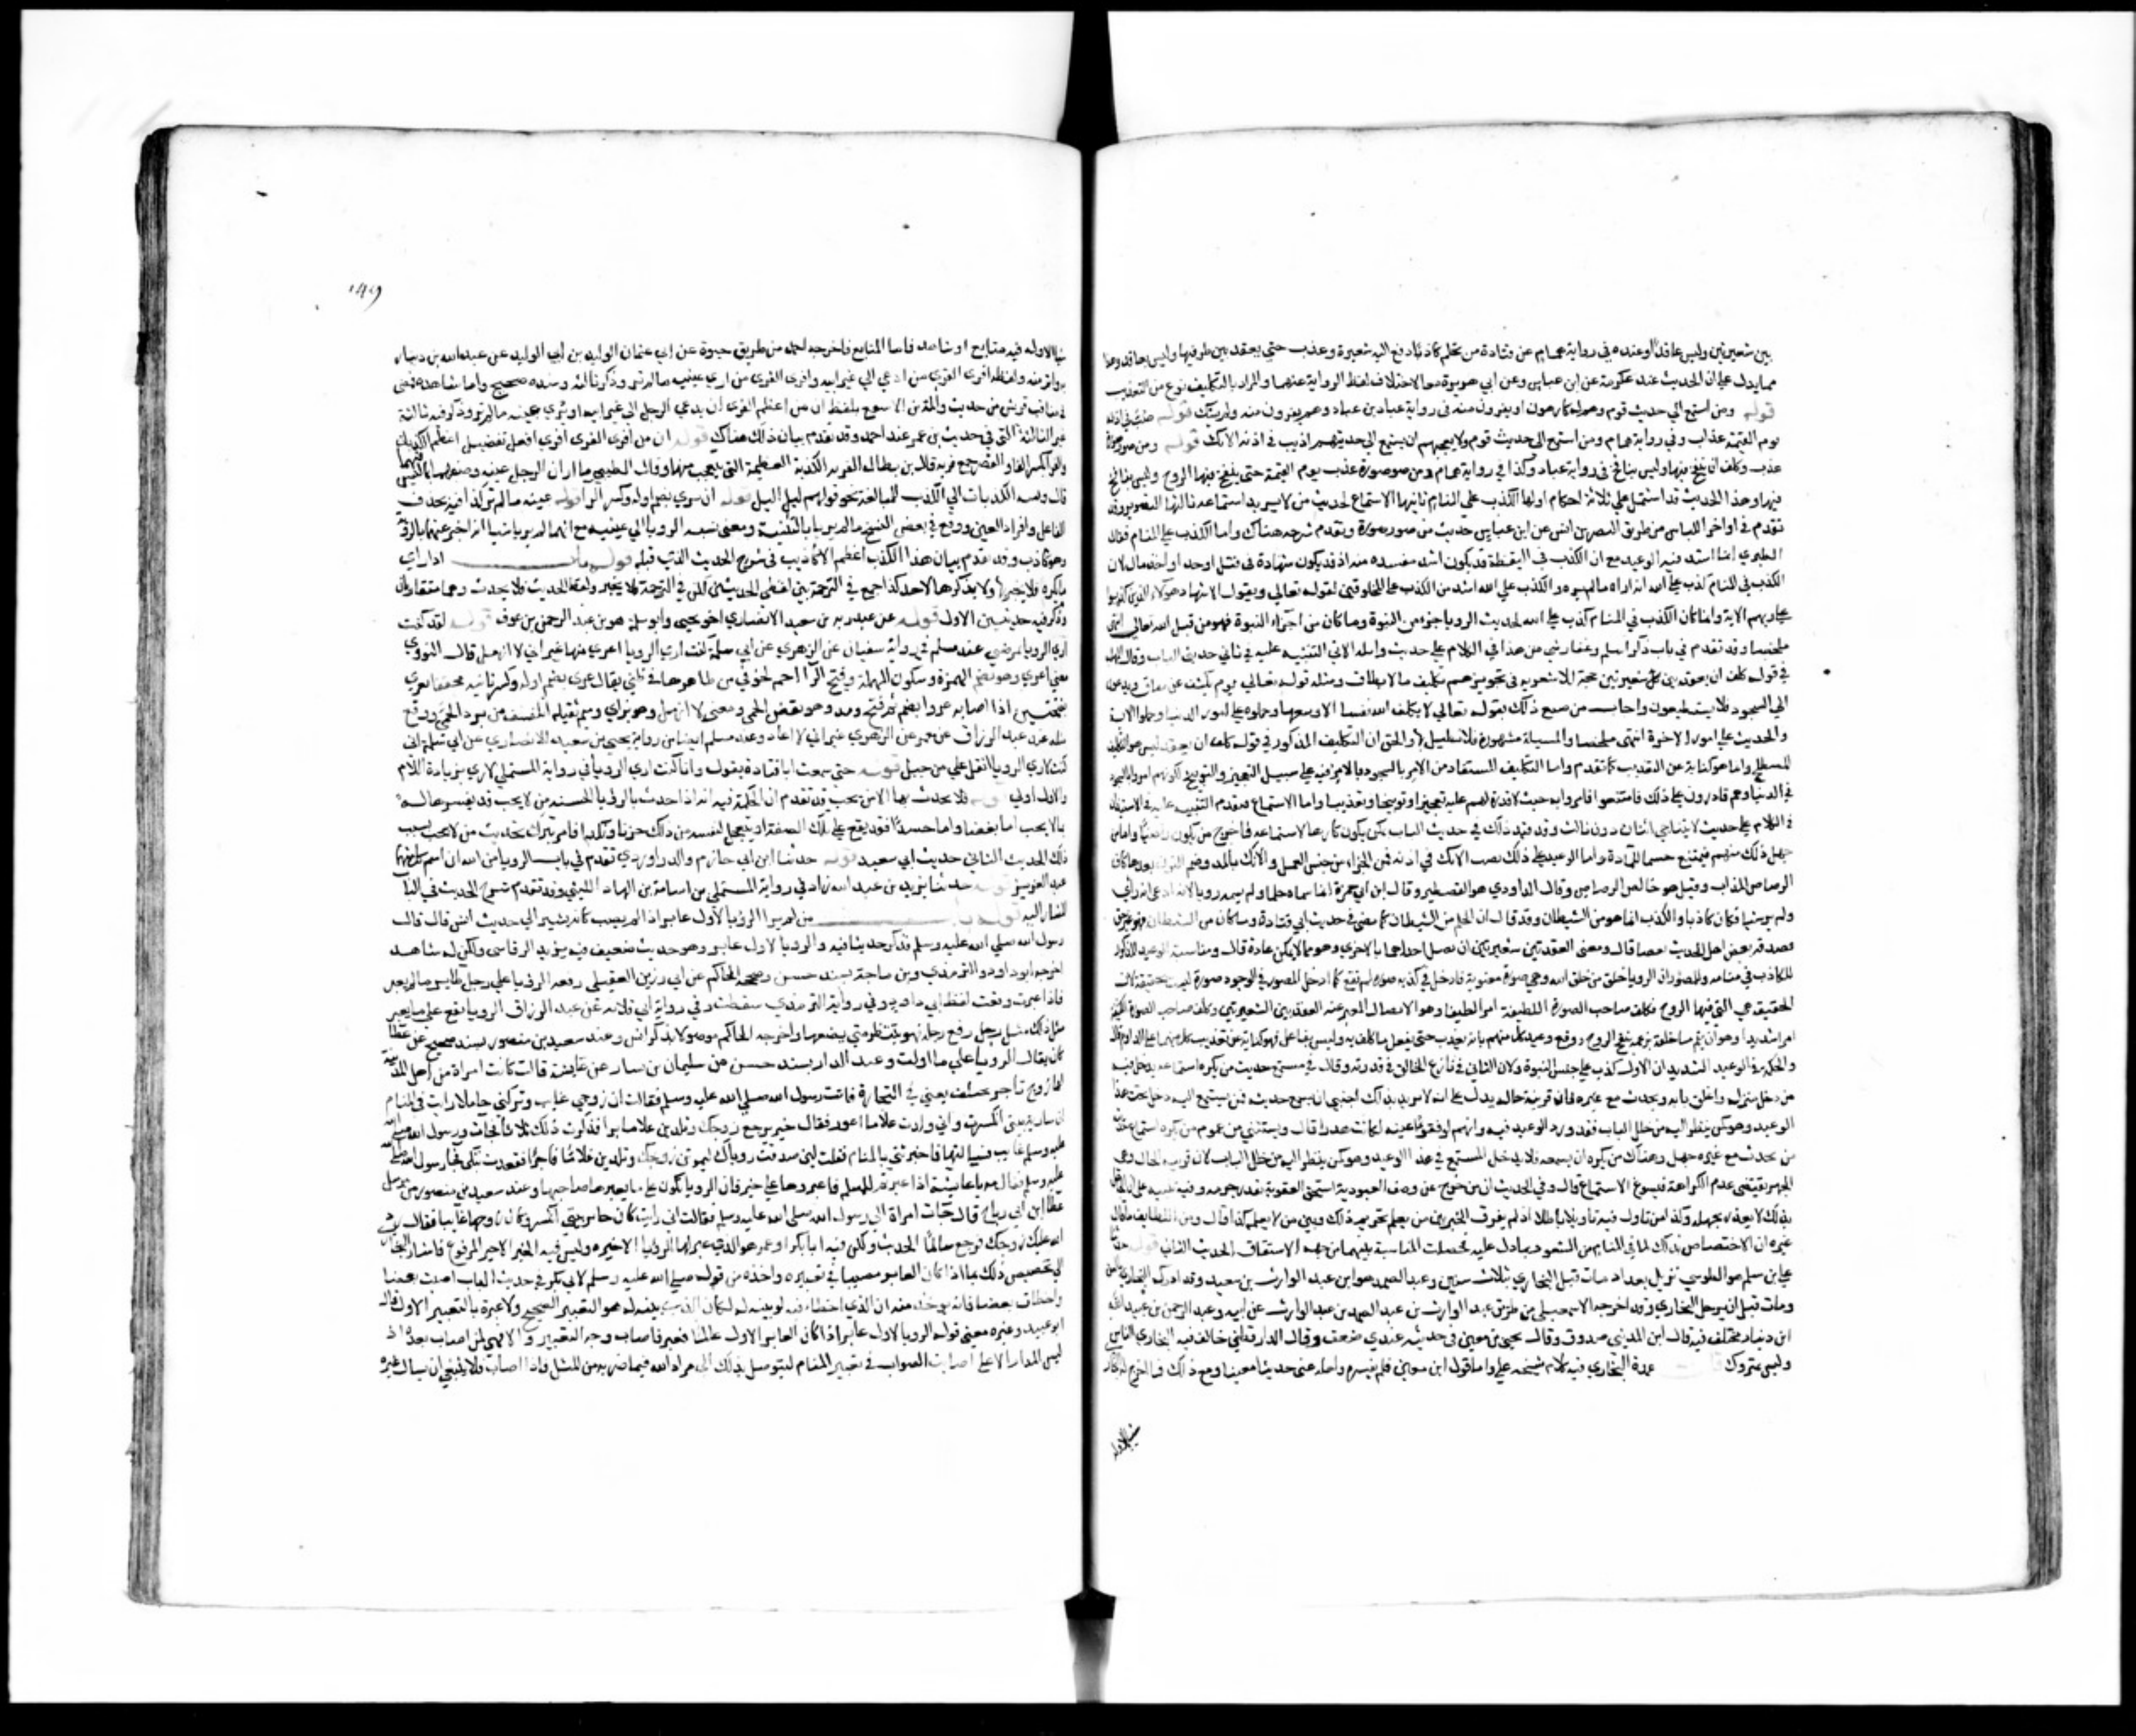 بين شعيرتين وليس عاقدا وعنده في رواية همام عن قتادة من تحلم كاذبا دفع اليه شعيرة وعذب حتى يعقد بين طرفيها وليس بعاقد وهذا
مما يدل على ان الحديث عند عكرمة عن ابن عباس وعن ابي هريرة معا لاختلاف لفظ الرواية عنهما والمراد بالتكليف نوع من التعذيب
قوله ومن استمع الي حديث قوم وهم له كارهون او يفرون منه في رواية عباد بن عباد وهم يفرون منه ولم يشك قوله صب في اذنه
يوم القيمة عذاب وفي رواية همام ومن استمع الى حديث قوم ولا يعجبهم ان يستمع الى حديثهم اذيب في اذنه الانك قوله ومن صور صورة
عذب وكلف ان ينفخ فيها وليس بنافخ في رواية عباد وكذا في رواية همام ومن صور صورة عذب يوم القيمة حتى ينفخ فيها الروح وليس بنافخ
فيها وهذا الحديث قد اشتمل علي ثلاثة احكام اولها الكذب علي المنام ثانيها الاستماع لحديث من لا يريد استماعه ثالثها التصوير وقد
تقدم في اواخر اللباس من طريق النضر بن انس عن ابن عباس حديث من صور صورة وتقدم شرحه هناك واما الكذب على المنام فقال
الطبري انما اشتد فيه الوعيد مع ان الكذب في اليقظة قد يكون اشد مفسدة منه اذ قد يكون شهادة في قتل او حد او اخذ مال لان
الكذب في المنام كذب على الله انه اراه ما لم يره والكذب علي الله اشد من الكذب على المخلوقين لقوله تعالي ويقول الاشهاد هولاء الذين كذبوا
على ربهم الاية وانما كان الكذب في المنام كذب على الله لحديث الرويا جزء من النبوة وما كان من اجزاء النبوة فهو من قبل الله تعالي انتهى
ملخصا وقد تقدم في باب ذكر اسلم وغفار شي من هذا في الكلام على حديث واثلة الاتي التنبيه عليه في ثاني حديثي الباب وقال المهلب
في قوله كلف ان يعقد بين شعيرتين حجة للاشعرية في تجويزهم تكليف ما لا يطاق ومثله قوله تعالي يوم يكشف عن ساق ويدعون
الي السجود فلا يستطيعون واجاب من منع ذلك بقوله تعالي لا يكلف الله نفسا الا وسعها وحملوه على امور الدنيا وحملوا الاية
والحديث على امور الاخرة انتهى ملخصا والمسيلة مشهورة فلا نطيل بها والحق ان التكليف المذكور في قوله كلف ان يعقد ليس هو التكليف
المصطلح وانما هو كناية عن التعذيب كما تقدم واما التكليف المستفاد من الامر بالسجود فالامر فيه على سبيل التعجيز والتوبيخ لكونهم امروا بالسجود
في الدنيا وهم قادرون على ذلك فامتنعوا فامروا به حيث لا قدرة لهم عليه تعجيزا وتوبيخا وتعذيبا واما الاستماع فتقدم التنبيه عليه في الاستيذان
في الكلام على حديث لا يتناجي اثنان دون ثالث وقد قيد ذلك في حديث الباب بمن يكون كارها لاستماعه فاخرج من يكون راضيا واما من
جهل ذلك منهم فيمتنع حسما للمادة واما الوعيد على ذلك بصب الانك في اذنه فمن الجزاء من جنس العمل والانك بالمد وضم النون بعدها كاف
الرصاص المذاب وقيل هو خالص الرصاص وقال الداودي هو القصدير وقال ابن ابي جمرة انما سماه حلما ولم يسمه رويا لانه ادعي انه راي
ولم ير شيا فكان كاذبا والكذب انما هو من الشيطان وقد قال ان الحلم من الشيطان كما مضى في حديث ابي قتادة وما كان من الشيطان فهو غير حق
فصدق بعض الحديث بعضا قال ومعنى العقد بين شعيرتين ان يفتل احداهما بالاخرى وهو مما لا يمكن عادة قال ومناسبة الوعيد المذكور
للكاذب في منامه وللمصور ان الرويا خلق من خلق الله وهي صورة معنوية فادخل في كذبه صورة لم تقع كما ادخل المصور في الوجود صورة ليست بحقيقة لان
الحقيقة هي التي فيها الروح فكلف صاحب الصورة اللطيفة امرا لطيفا وهو الاتصال المعبر عنه بالعقد بين الشعيرتين وكلف صاحب الصورة الكثيفة
امرا شديدا وهو ان يتم ما خلقه بزعمه بنفخ الروح ووقع وعيد كل منهما بانه يعذب حتى يفعل ما كلف به وليس بفاعل فهو كناية عن تعذيب كل منهما على الدوام قال
والحكمة في الوعيد الشديد ان الاول كذب على جنس النبوة وان الثاني نازع الخالق في قدرته وقال في مستمع حديث من يكره استماعه يدخل فيه
من دخل منزله واغلق بابه وتحدث مع غيره فان قرينة حاله يدل على انه لا يريد بذلك اجنبي ان يسمع حديثه فمن يستمع اليه دخل تحت هذا
الوعيد وهو كمن ينظر اليه من خلل الباب فقد ورد الوعيد فيه وانهم لو فقؤا عينه لكانت هدرا قال ويستثني من عموم من يكره استماع حديثه
من يحدث مع غيره جهرا وهناك من يكره ان يسمعه فلا يدخل المستمع في هذا الوعيد
الجهر يقتضي عدم الكراهة فيسوغ الاستماع قال وفي الحديث ان من خرج عن وصف العبودية استحق العقوبة بقدر خروجه وفيه تنبيه على ان الجاهل
بذلك لا يعذر بجهله وكذا من تاول فيه تاويلا باطلا اذ لم يفرق الخبر بين من يعلم تحريم ذلك وبين من لا يعلم كذا قال ومن اللطايف ما قال
غيره ان الاختصاص بذلك
علي بن مسلم هو الطوسي نزيل بغداد مات قبل البخاري بثلاث سنين وعبد الصمد هو ابن عبد الوارث بن سعيد وقد ادرك البخاري
ومات قبل ان يرحل البخاري وقد اخرجه الاسمعيلي من طريق عبد الوارث بن عبد الصمد بن عبد الوارث عن ابيه وعبد الرحمن بن عبد الله
ابن دينار مختلف فيه قال ابن المديني صدوق وقال يحيى بن معين في حديثه عندي ضعف وقال الدارقطني خالف فيه البخاري الناس
وليس بمتروك عمدة البخاري فيه كلام شيخه علي واما قول ابن معين فلم يفسره ولعله عنى حديثا معينا ومع ذلك فما اخرج له البخاري
شيا الا وله
149
شيا الا وله فيه متابع او شاهد فاما المتابع فاخرجه احمد من طريق حيوة عن ابي عثمان الوليد بن ابي الوليد عن عبد الله بن دينار
به واتم منه ولفظه افرى الفرى من ادعي الي غير ابيه وافرى الفرى من اري عينيه ما لم تر وذكر ثالثة وسنده صحيح واما شاهده فمضى
في مناقب قريش من حديث واثلة بن الاسقع بلفظ ان من اعظم الفرى ان يدعي الرجل الى غير ابيه او يري عينه ما لم تر وذكر فيه ثالثة
غير الثالثة التي في حديث بن عمر عند احمد وقد تقدم بيان ذلك هناك قوله ان من افرى الفرى افرى افعل تفضيل اعظم الكذبات
والفرا بكسر الفا والقصر جمع فرية قال بن بطال الفرية الكذبة العظيمة التي يتعجب منها وقال الطيبي ما اراء الرجل عينيه وصفهما بما ليس فيهما
قال ونسبة الكذبات الي الكذب للمبالغة نحو قولهم ليل اليل قوله ان يري بضم اوله وكسر الرا قوله عينه ما لم تر كذا فيه بحذف
الفاعل وافراد العين ووقع في بعض النسخ ما لم يريا بالتثنية ومعنى نسبة الرويا الي عينيه مع انهما لم يريا شيا انه اخبر عنهما بالروية
وهو كاذب وقد تقدم بيان هذا الكذب اعظم الاكاذيب في شرح الحديث الذي قبله قوله باب اذا راي
ما يكره فلا يخبر بها ولا يذكرها لاحد كذا جمع في الترجمة بين لفظي الحديثين لكن في الترجمة فلا يخبر ولفظ الحديث فلا يحدث وهما متقاربان
وذكر فيه حديثين الاول قوله عن عبد ربه بن سعيد الانصاري اخو يحيى وابو سلمة هو بن عبد الرحمن بن عوف قوله لقد كنت
اري الرويا تمرضني عند مسلم في رواية سفيان عن الزهري عن ابي سلمة كنت اري الرويا اعري منها غير اني لا ازمل قال النووي
معنى اعري وهو بضم الهمزة وسكون المهملة وفتح الرا احم لخوفي من ظاهرها في ظني يقال عري بضم اوله وكسر ثانيه مخففا يعري
بفتحتين اذا اصابه عرا بضم ثم فتح ومد وهو نفض الحمى ومعنى لا ازمل وهو بزاي وميم ثقيلة التفف من برد الحمى ووقع
مثله عند عبد الرزاق عن معمر عن الزهري غير اني لا اعاد وعند مسلم ايضا من رواية يحيى بن سعيد الانصاري عن ابي سلمة ان
كنت لاري الرويا اثقل علي من جبل قوله حتى سمعت ابا قتادة يقول وانا كنت اري الرويا في رواية المستملي لاري بزيادة اللام
والاول اولي قوله فلا يحدث بها الا من يحب قد تقدم ان الحكمة فيه انه اذا حدث بالرويا الحسنة من لا يحب قد يفسرها له
بما لا يحب اما بغضا واما حسدا فقد يقع على تلك الصفة او يتعجل لنفسه من ذلك حزنا ونكدا فامر بترك تحديث من لا يحب بسبب
ذلك الحديث الثاني حديث ابي سعيد قوله حدثنا ابن ابي حازم والدراوردي تقدم في باب الرويا من الله ان اسم كل منهما
عبد العزيز قوله حدثنا يزيد بن عبد الله زاد في رواية المستملي بن اسامة بن الهاد الليثي وقد تقدم شرح الحديث في الباب
المشار اليه قوله باب من لم ير الرويا لاول عابر اذا لم يصب كانه يشير الي حديث انس قال قال
رسول الله صلي الله عليه وسلم فذكر حديثا فيه والرويا لاول عابر وهو حديث ضعيف فيه يزيد الرقاشي ولكن له شاهد
اخرجه ابو داود والترمذي وبن ماجة بسند حسن وصححه الحاكم عن ابي رزين العقيلي رفعه الرويا علي رجل طاير ما لم يعبر
فاذا عبرت وقعت لفظ ابي داود وفي رواية الترمذي سقطت وفي رواية ابي قلابة عن عبد الرزاق الرويا تقع علي ما يعبر
مثل ذلك مثل رجل رفع رجله فهو ينتظر متي يضعها واخرجه الحاكم موصولا بذكر انس وعند سعيد بن منصور بسند صحيح عن عطا
كان يقال الرويا علي ما اولت وعند الدارمي بسند حسن عن سليمان بن يسار عن عايشة قالت كانت امراة من اهل المدينة
لها زوج تاجر يختلف يعني في التجارة فاتت رسول الله صلي الله عليه وسلم فقالت ان زوجي غايب وتركني حاملا رايت في المنام
ان سارية بيتي انكسرت واني ولدت غلاما اعور فقال خير يرجع زوجك وتلدين غلاما برا فذكرت ذلك ثلاثا فجات ورسول الله صلى الله
عليه وسلم غايب فسالتها فاخبرتني بالمنام فقلت لين صدقت روياك ليموتن زوجك وتلدين غلاما فاجرا فقعدت تبكي فجا رسول الله صلي الله
عليه وسلم فقال مه يا عايشة اذا عبرتم للمسلم فاعبروها على خير فان الرويا تكون على ما يعبرها صاحبها وعند سعيد بن منصور من مرسل
عطا ابن ابي رباح قال جات امراة الي رسول الله صلى الله عليه وسلم فقالت اني رايت كان جايز بيتي انكسر وكان زوجها غايبا فقال رد
الله عليك زوجك فرجع سالما الحديث ولكن فيه ابا بكر او عمر هو الذي عبر لها الرويا الاخيرة وليس فيه الخبر الاخير المرفوع فاشار البخاري
الي تخصيص ذلك بما اذا كان العابر مصيبا في تعبيره واخذه من قوله صلى الله عليه وسلم لابي بكر في حديث الباب اصبت بعضا
واخطات بعضا فانه يوخذ منه ان الذي اخطا فيه لو بينه له لكان الذي بينه له هو التعبير الصحيح ولا عبرة بالتعبير الاول قال
ابو عبيد وغيره معنى قوله الرويا لاول عابر اذا كان العابر الاول عالما فعبر فاصاب وجه التعبير والا فهي لمن اصاب بعده اذ
ليس المدار الا على اصابة الصواب في تعبير المنام ليتوصل بذلك الى مراد الله فيما ضربه من المثل فاذا اصاب فلا ينبغي ان يسال غيره